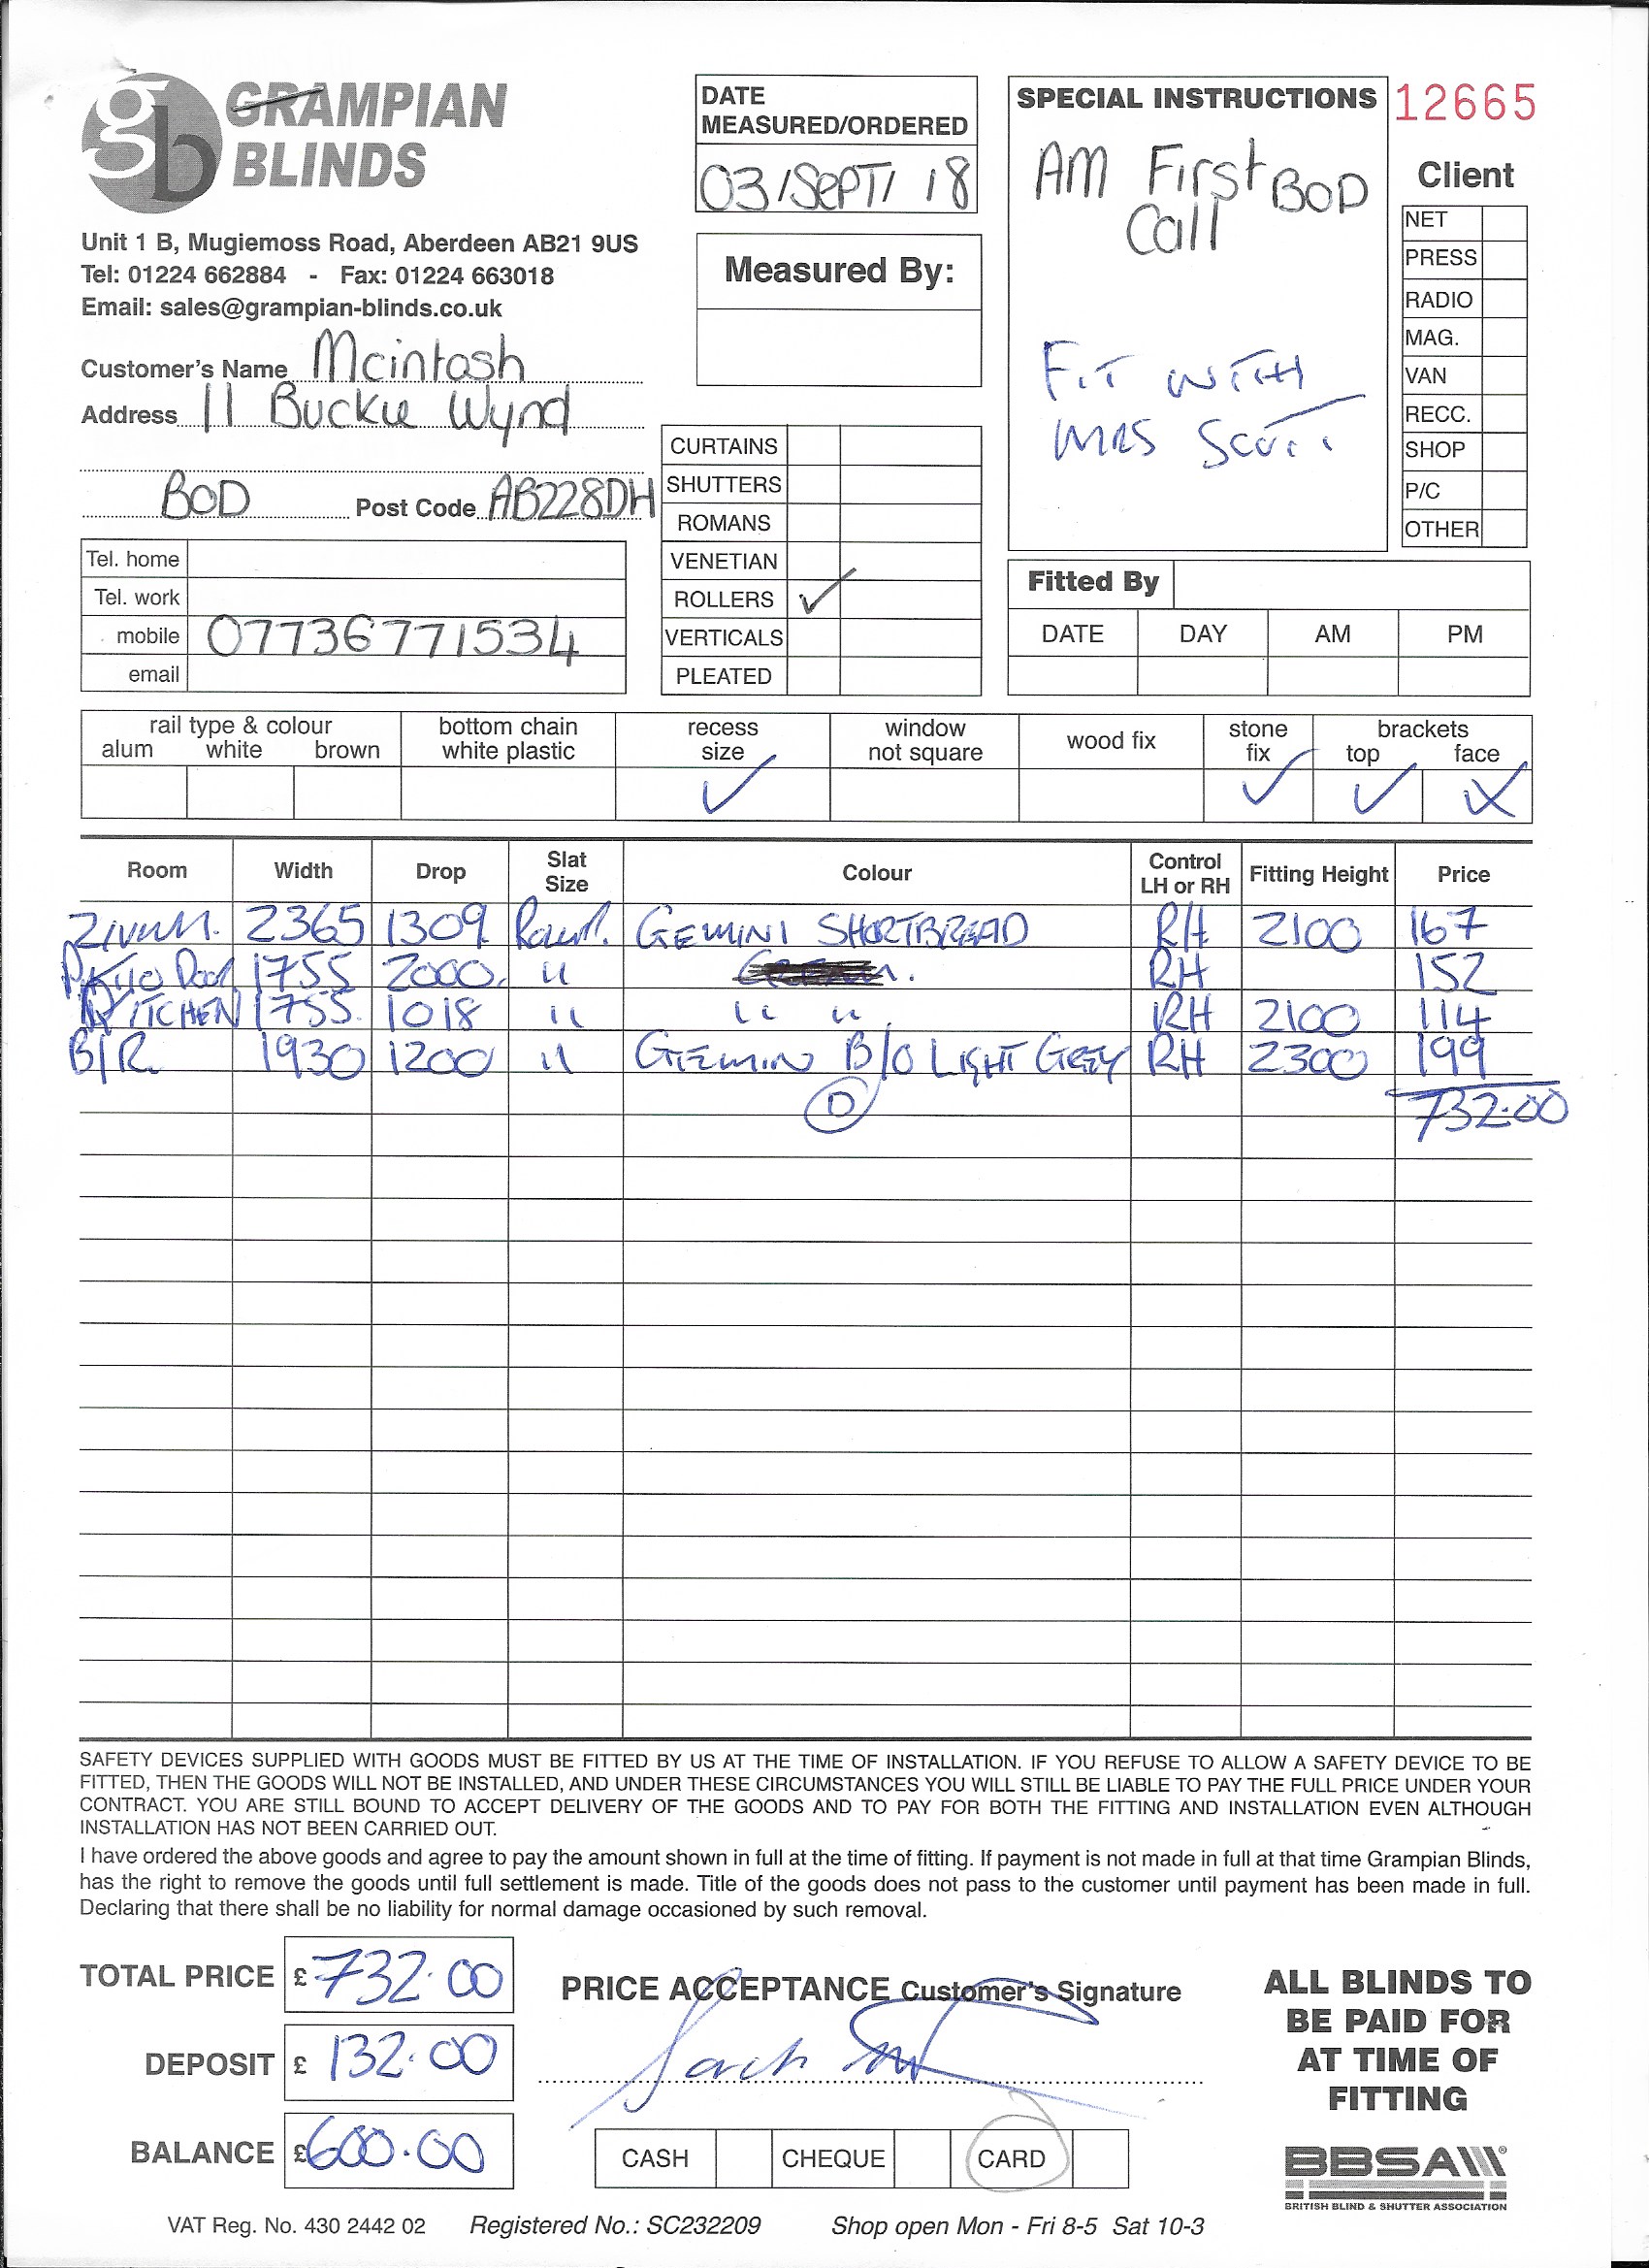 gb GRAMPIAN BLINDS
Unit 1 B, Mugiemoss Road, Aberdeen AB21 9US
Tel: 01224 662884 - Fax: 01224 663018
Email: sales@grampian-blinds.co.uk
Customer's Name Mcintosh
Address 11 Buckie Wynd
BOD Post Code AB228DH
Tel. home
Tel. work
mobile 07736771534
email
DATE MEASURED/ORDERED
03/SEPT/18
Measured By:
CURTAINS
SHUTTERS
ROMANS
VENETIAN
ROLLERS ✓
VERTICALS
PLEATED
SPECIAL INSTRUCTIONS
AM First BOD
Call
FIT WITH
MRS SCOTT
12665
Client
NET
PRESS
RADIO
MAG.
VAN
RECC.
SHOP
P/C
OTHER
Fitted By
DATE DAY AM PM
rail type & colour
alum white brown
bottom chain
white plastic
recess
size ✓
window
not square
wood fix
stone
fix ✓
brackets
top ✓ face X
Room Width Drop Slat Size Colour Control LH or RH Fitting Height Price
2365 1309 GEMINI SHORTBREAD RH 2100 167
1755 2000 " RH 152
KITCHEN 1755 1018 " " " RH 2100 114
B/R 1930 1200 " GEMINI B/O LIGHT GREY RH 2300 199
D 732.00
SAFETY DEVICES SUPPLIED WITH GOODS MUST BE FITTED BY US AT THE TIME OF INSTALLATION. IF YOU REFUSE TO ALLOW A SAFETY DEVICE TO BE
FITTED, THEN THE GOODS WILL NOT BE INSTALLED, AND UNDER THESE CIRCUMSTANCES YOU WILL STILL BE LIABLE TO PAY THE FULL PRICE UNDER YOUR
CONTRACT. YOU ARE STILL BOUND TO ACCEPT DELIVERY OF THE GOODS AND TO PAY FOR BOTH THE FITTING AND INSTALLATION EVEN ALTHOUGH
INSTALLATION HAS NOT BEEN CARRIED OUT.
I have ordered the above goods and agree to pay the amount shown in full at the time of fitting. If payment is not made in full at that time Grampian Blinds,
has the right to remove the goods until full settlement is made. Title of the goods does not pass to the customer until payment has been made in full.
Declaring that there shall be no liability for normal damage occasioned by such removal.
TOTAL PRICE £ 732.00
DEPOSIT £ 132.00
BALANCE £ 600.00
PRICE ACCEPTANCE Customer's Signature
CASH CHEQUE CARD
ALL BLINDS TO
BE PAID FOR
AT TIME OF
FITTING
BBSA
BRITISH BLIND & SHUTTER ASSOCIATION
VAT Reg. No. 430 2442 02 Registered No.: SC232209 Shop open Mon - Fri 8-5 Sat 10-3